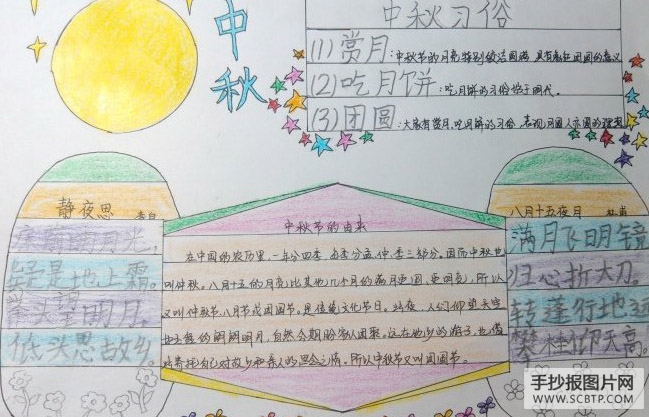 中秋
中秋习俗
(1)赏月:中秋节的月亮特别皎洁圆满,具有象征团圆的意义
(2)吃月饼:吃月饼的习俗始于明代。
(3)团圆:大家有赏月,吃月饼的习俗,表现月圆人亦圆的理想
静夜思 李白
床前明月光,
疑是地上霜。
举头望明月,
低头思故乡。
中秋节的由来
在中国的农历里,一年分四季,每季分孟、仲、季三部分。因而中秋也
叫仲秋。八月十五的月亮比其他几个月的满月更圆,更明亮,所以
又叫仲秋节、八月节或团圆节。是传统文化节日。此夜,人们仰望天空
中的朗朗明月,自然会期盼家人团聚。远在他乡的游子,也借
此寄托自己对故乡和亲人的思念之情。所以中秋节又叫团圆节。
八月十五夜月 杜甫
满月飞明镜
归心折大刀。
转蓬行地远
攀桂仰天高。
手抄报图片网
WWW.SCBTP.COM